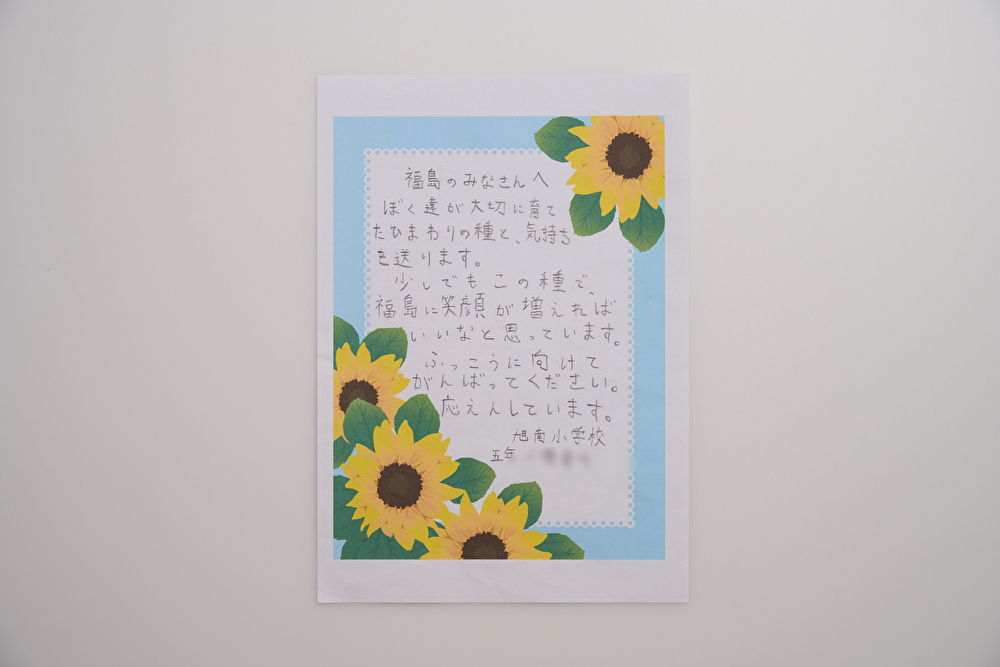 福島のみなさんへ
ぼく達が大切に育て
たひまわりの種と、気持ち
を送ります。
少しでもこの種で、
福島に笑顔が増えれば
いいなと思っています。
ふっこうに向けて
がんばってください。
応えんしています。
旭南小学校
五年